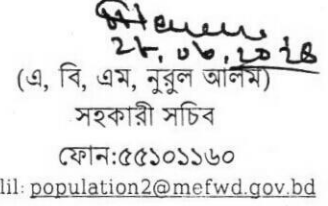 ২৮.০৬.২০২৪
(এ, বি, এম, নুরুল আলম)
সহকারী সচিব
ফোন:৫৫১০১১৬০
lil: population2@mefwd.gov.bd